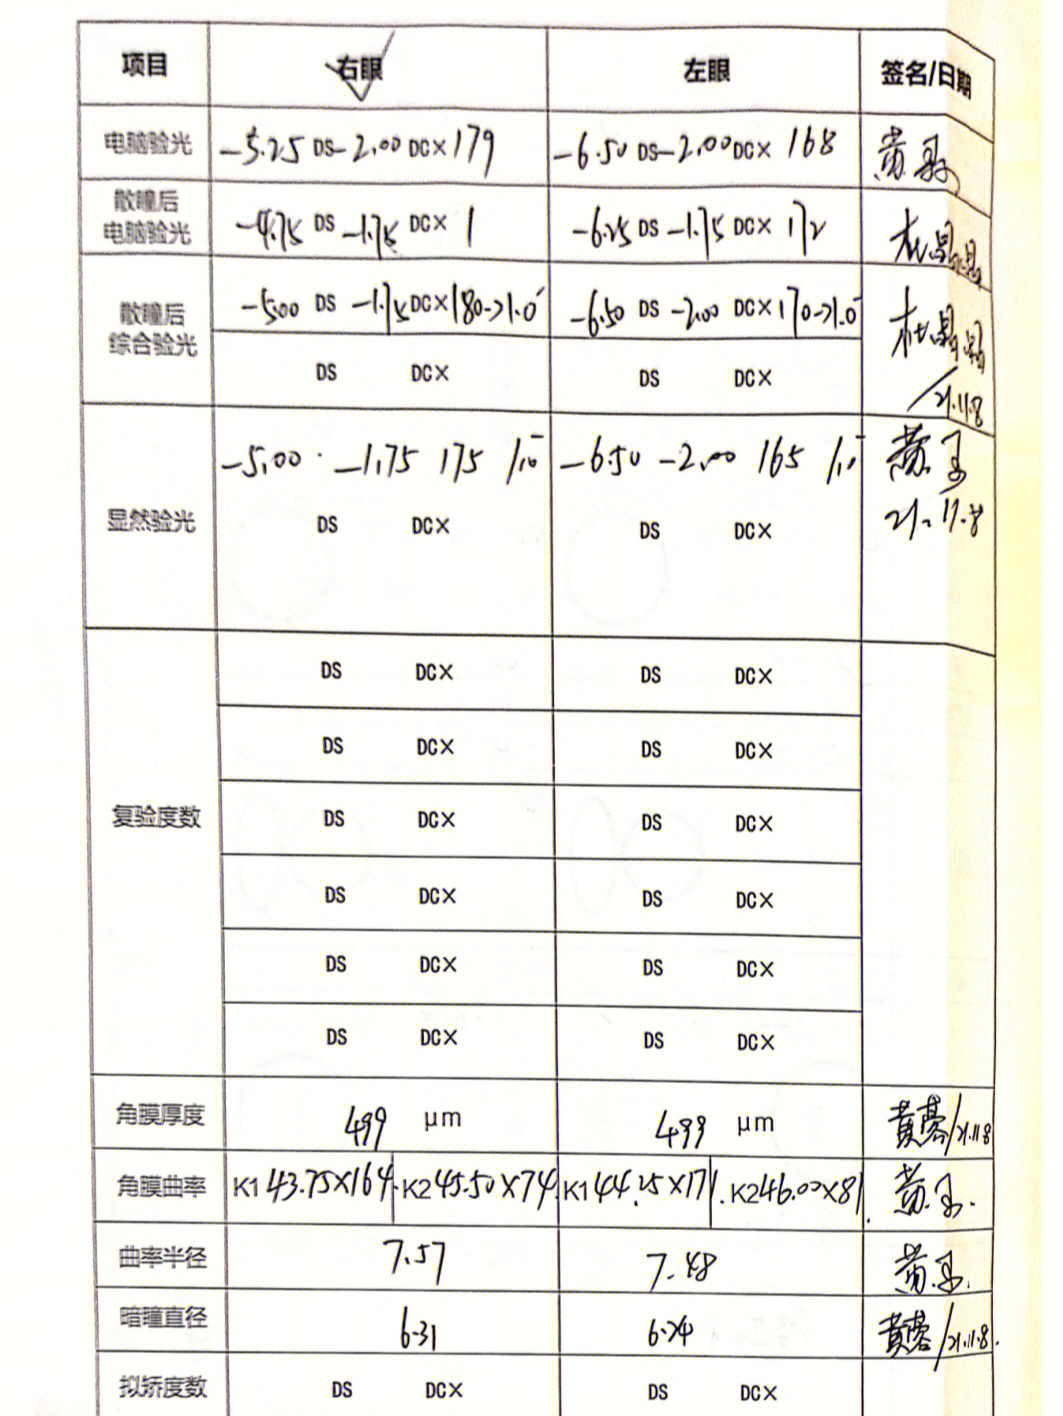 项目 右眼 左眼 签名/日期
电脑验光 -5.25 DS -2.00 DC× 179 -6.50 DS -2.00 DC× 168
散瞳后
电脑验光 -4.75 DS -1.75 DC× 1 -6.25 DS -1.75 DC× 172
散瞳后
综合验光 -5.00 DS -1.75 DC× 180->1.0⁻ -6.50 DS -2.00 DC× 170->1.0⁻
DS DC× DS DC× /21.11.8
-5.00 -1.75 175 1.0⁻ -6.50 -2.00 165 1.0⁻
显然验光 DS DC× DS DC× 21.11.8
DS DC× DS DC×
DS DC× DS DC×
复验度数 DS DC× DS DC×
DS DC× DS DC×
DS DC× DS DC×
DS DC× DS DC×
角膜厚度 499 μm 499 μm /21.11.8
角膜曲率 K1 43.75×164 K2 45.50×74 K1 44.25×171. K2 46.00×81.
曲率半径 7.57 7.48
暗瞳直径 6.31 6.24 /21.11.8.
拟矫度数 DS DC× DS DC×